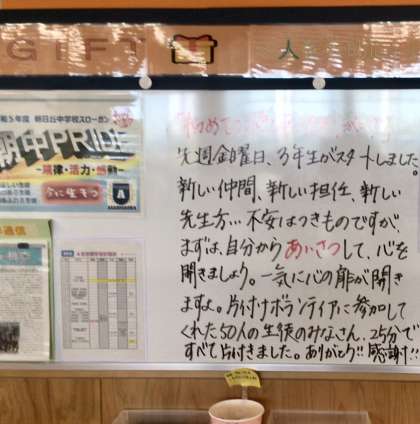 GIFT
人
朝日丘中学校スローガン
朝中PRIDE
~規律・活力・感動~
今に生きる
通信
先週金曜日、3年生がスタートしました。
新しい仲間、新しい担任、新しい
先生方…不安はつきものですが、
まずは、自分からあいさつして、心を
開きましょう。一気に心の扉が開き
ますよ。片付けボランティアに参加して
くれた50人の生徒のみなさん、25分で
すべて片付きました。ありがとう!!感謝!!